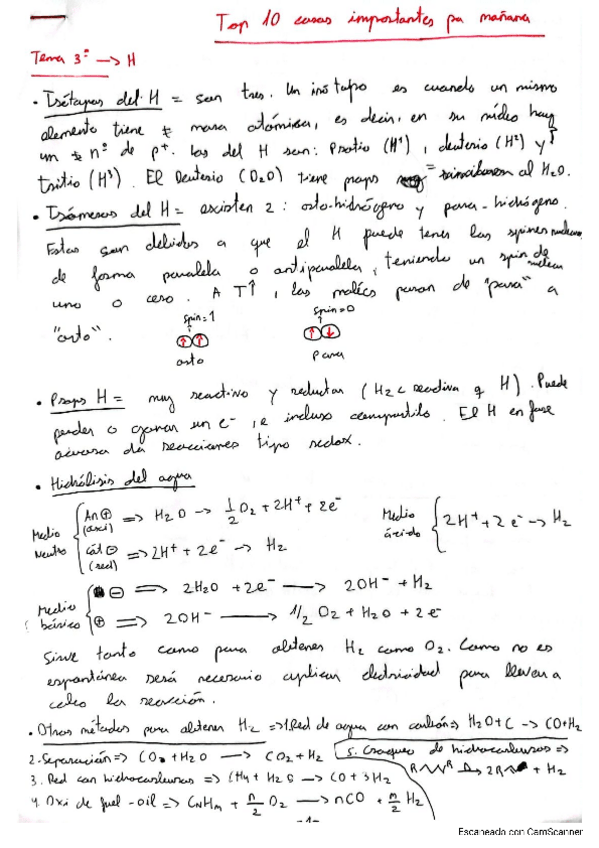 Top 10 cosas importantes pa mañana
Tema 3º → H
• Isótopos del H = son tres. Un isótopo es cuando un mismo
elemento tiene ≠ masa atómica, es decir, en su núcleo hay
un ≠ nº de p⁺. Los del H son: Protio (H¹), deuterio (H²) y
tritio (H³). El Deuterio (D₂O) tiene props = similares al H₂O.
• Isómeros del H = existen 2: orto-hidrógeno y para-hidrógeno.
Estos son debidos a que el H puede tener los spines nucleares
de forma paralela o antiparalela, teniendo un spin de nuclear
uno o cero. A T↑, las molécs pasan de "para" a
"orto".
spin=1
spin=0
orto
para
• Props H = muy reactivo y reductor (H₂ < reactiva q H). Puede
perder o ganar un e⁻, e incluso compartirlo. El H en fase
acuosa da reacciones tipo redox.
• Hidrólisis del agua
Medio neutro
An ⊕ (oxi) => H₂O → 1/2 O₂ + 2H⁺ + 2e⁻
cát ⊖ (red) => 2H⁺ + 2e⁻ → H₂
Medio ácido { 2H⁺ + 2e⁻ → H₂
Medio básico
⊖ => 2H₂O + 2e⁻ → 2OH⁻ + H₂
⊕ => 2OH⁻ → 1/2 O₂ + H₂O + 2e⁻
Sirve tanto como para obtener H₂ como O₂. Como no es
espontánea será necesario aplicar electricidad para llevar a
cabo la reacción.
• Otros métodos para obtener H₂ => 1. Red de agua con carbón => H₂O + C → CO + H₂
2. Separación => CO + H₂O → CO₂ + H₂
5. Craqueo de hidrocarburos =>
3. Red con hidrocarburos => CH₄ + H₂O → CO + 3H₂
4. Oxi de fuel-oil => CnHm + n/2 O₂ → nCO + m/2 H₂
-1-
Escaneado con CamScanner